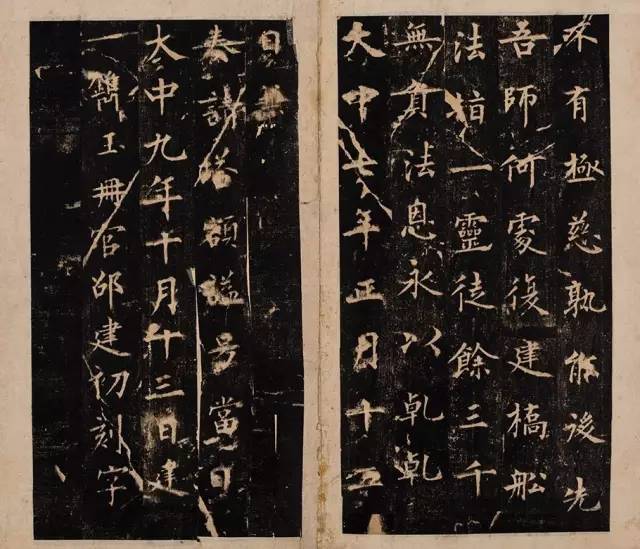 不有極慈孰能後先
吾師何處復建橋舩
法指一靈徒餘三千
無負法恩永以乾乾
大中七年正月十五
日
奏請塔額謚号當日
大中九年十月十三日建
鐫玉冊官邵建初刻字